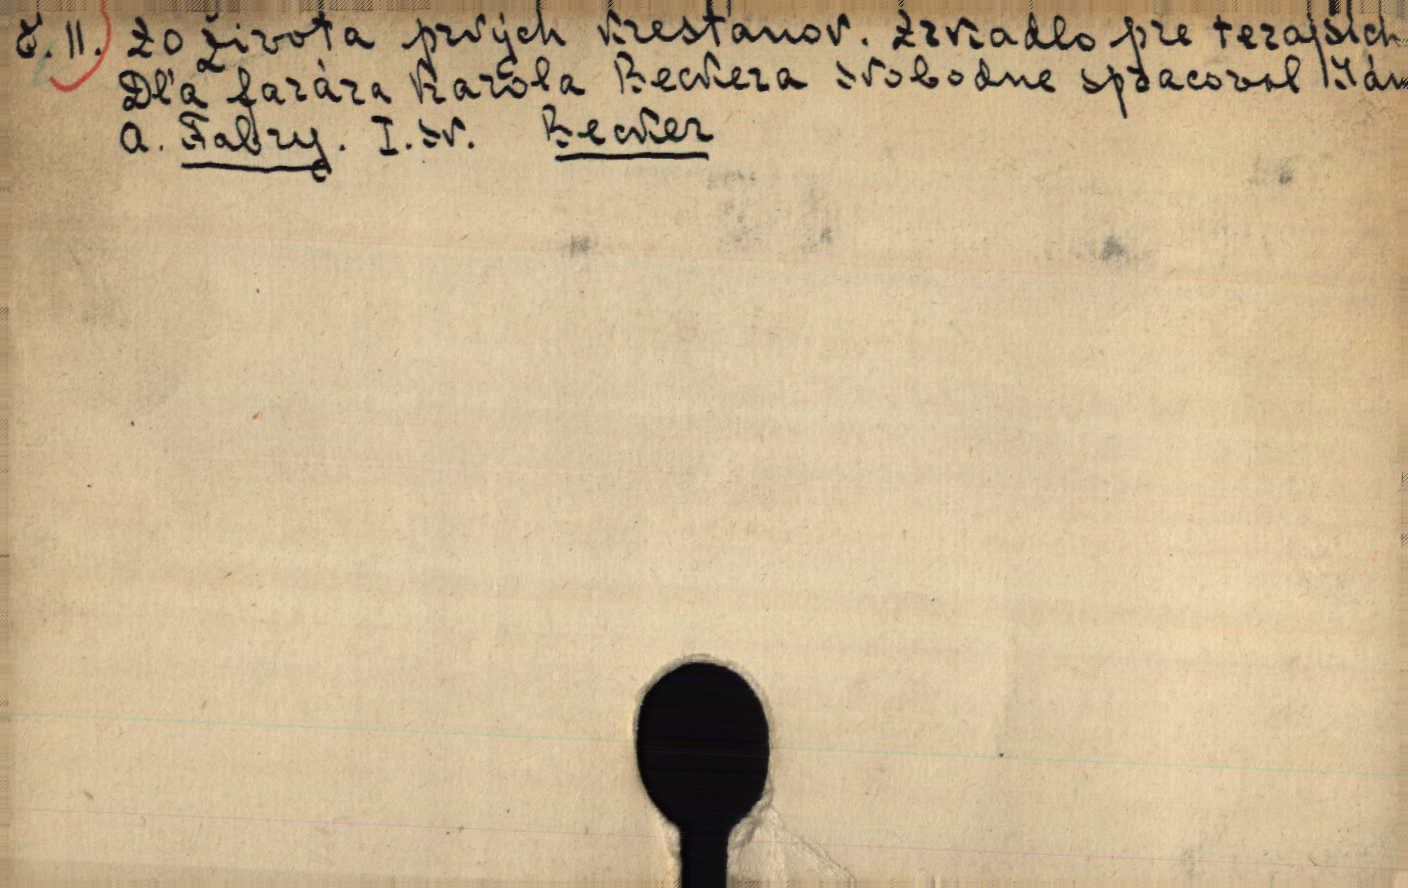 č. 11. Zo života prvých kresťanov. Zrkadlo pre terajších
Dľa farára Karola Beckera svobodne spracoval Ján
A. Fabry. I. sv. Becker